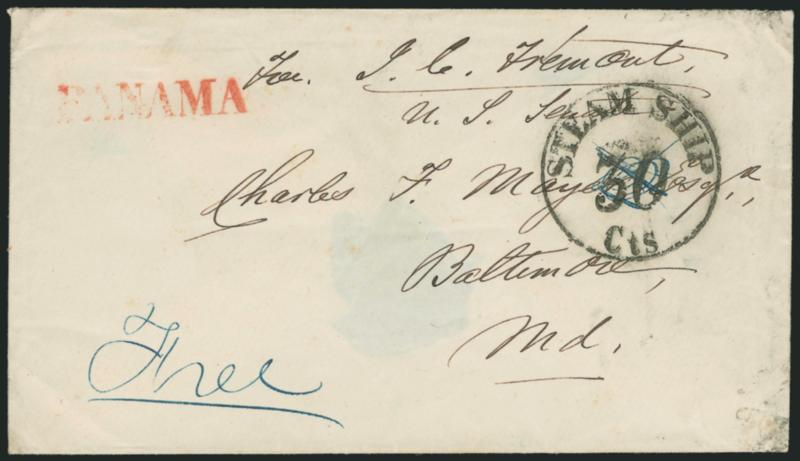 PANAMA
For. J. C. Frémont,
U. S. Sen
STEAM SHIP
30
Cts
Charles F. Mayer Esqr.,
Baltimore,
Md.
Free